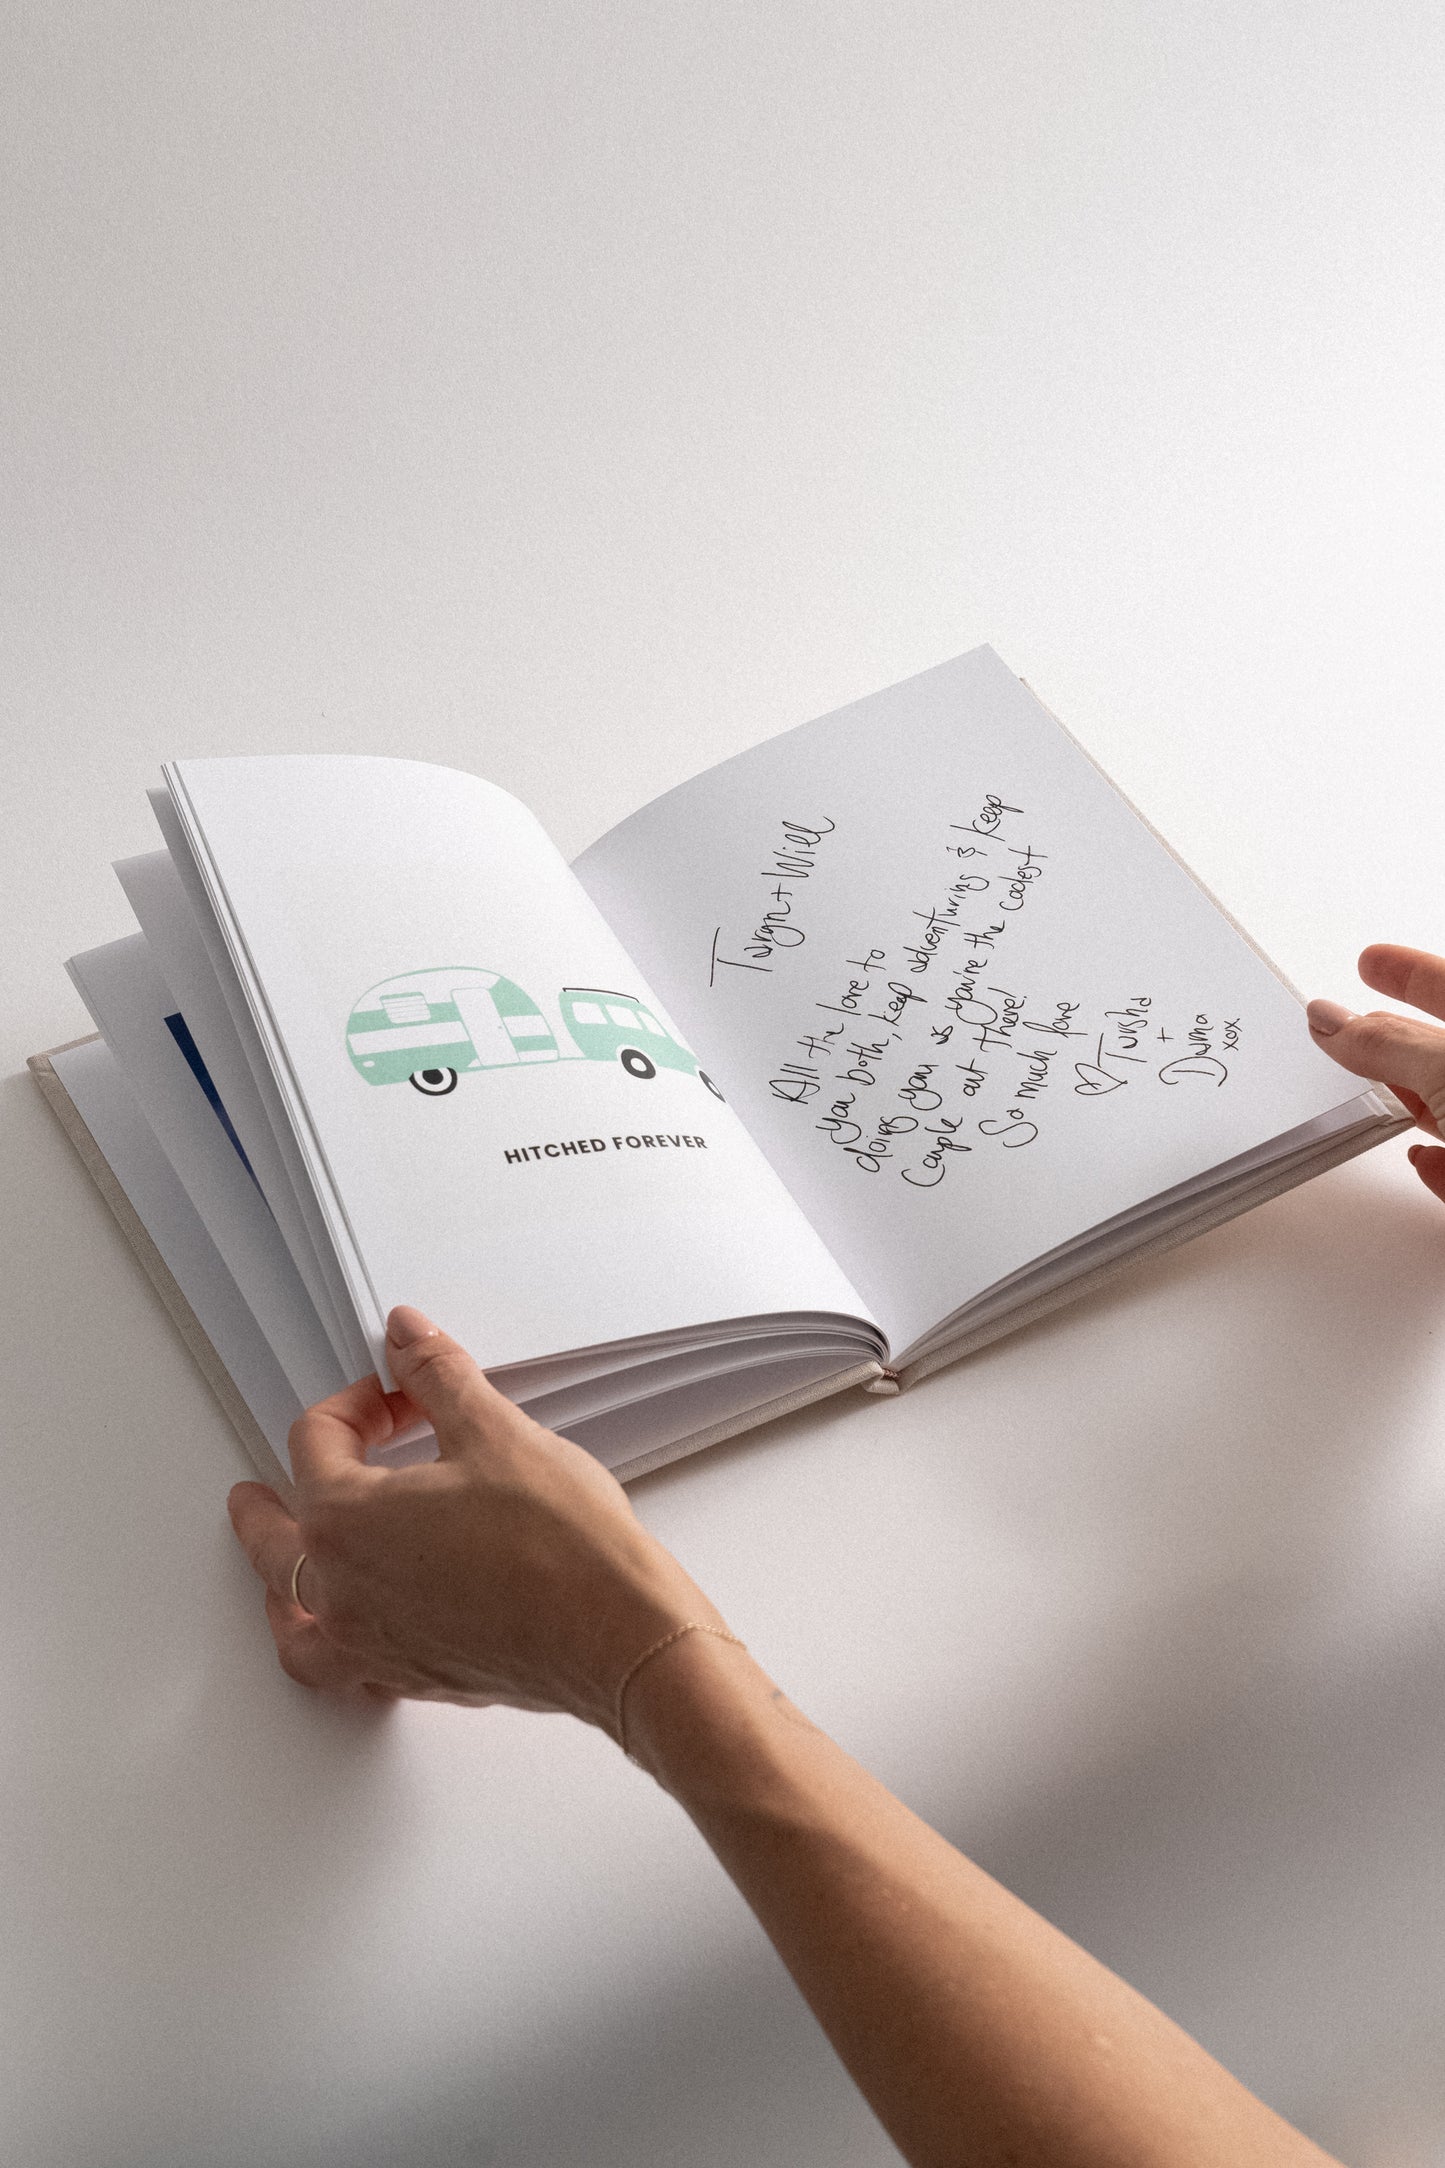 HITCHED FOREVER
Taryn + Will
All the love to
you both, keep adventuring & keep
doing you as you're the coolest
couple out there!
So much love
♡ Tarsha
+
Dama
xox